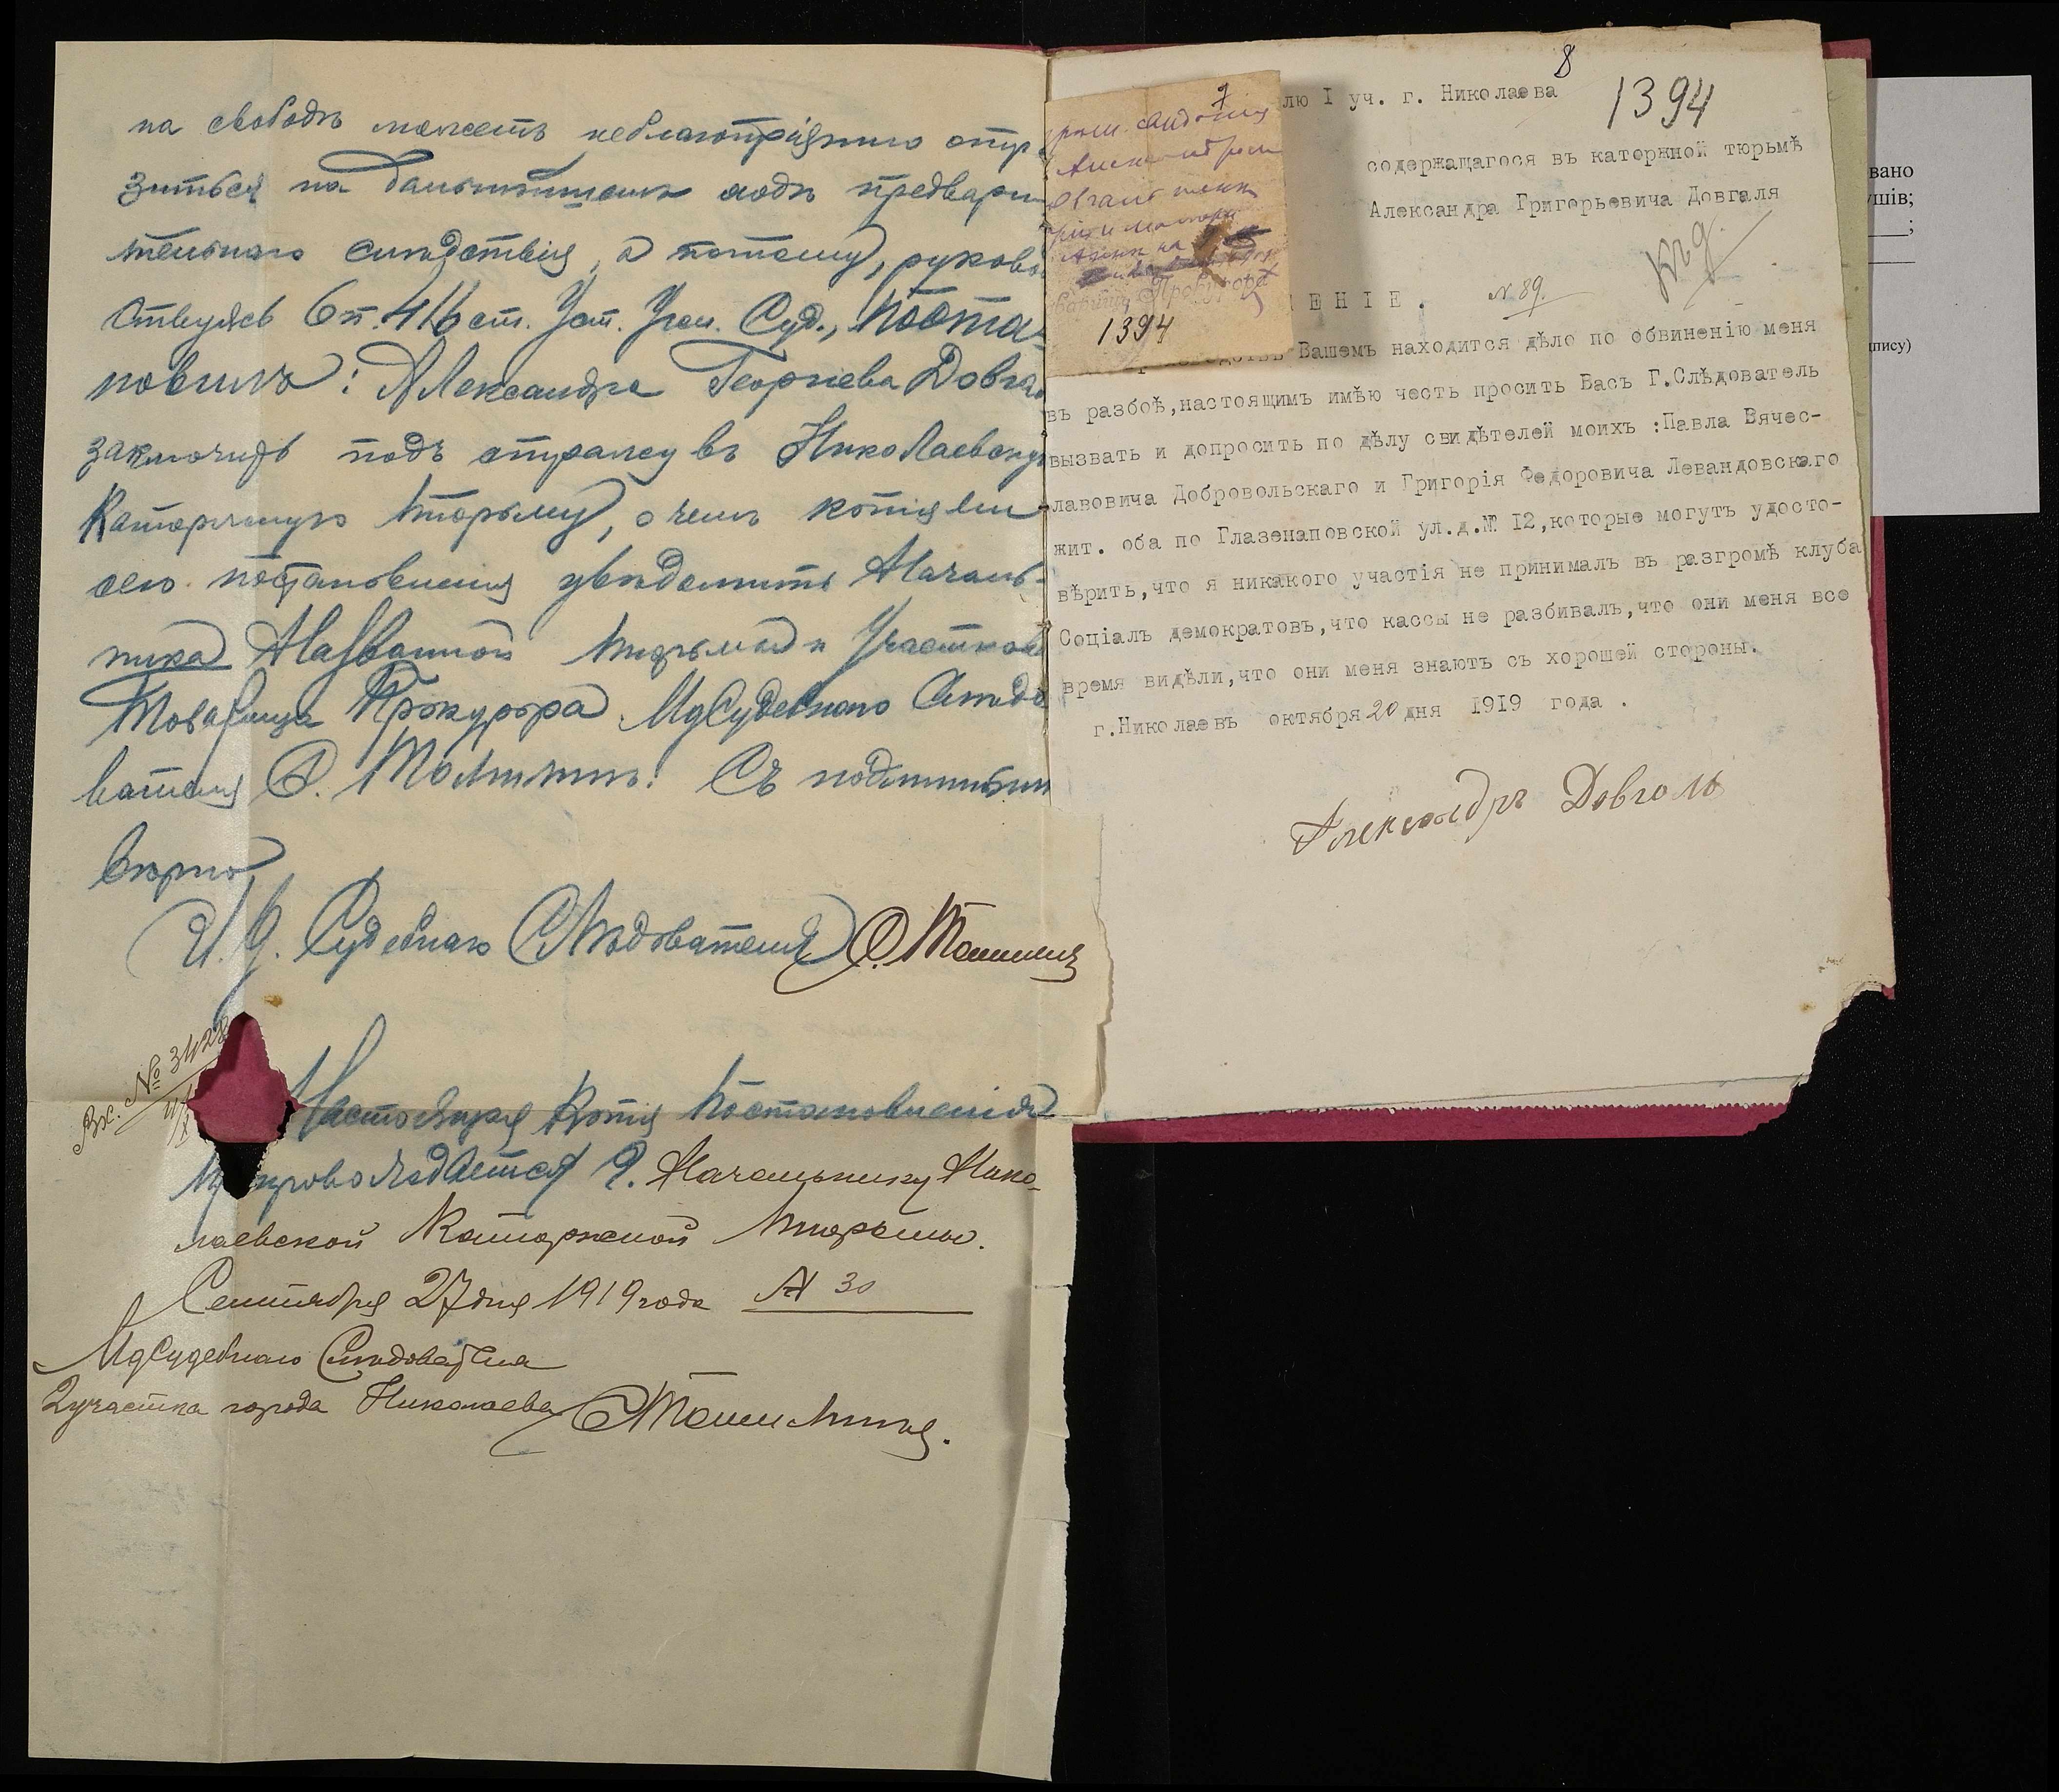 на свободѣ можетъ неблагопріятно отра-
зиться на дальнѣйшемъ ходѣ предвари
тельнаго слѣдствія, а потому, руково
ствуясь 6 п. 416 ст. Уст. Угол. Суд., поста-
новилъ: Александра Георгіева Довга
заключить подъ стражу въ Николаевскую
Каторжную тюрьму, о чемъ копіями
сего постановленія увѣдомить Началь-
ника Названной тюрьмы и Участков
Товарища Прокурора ИдСудебнаго Слѣдо
вателя С. Съ подлиннымъ
вѣрно
И. д. Судебнаго Слѣдователя С.
Вх. № 3428
Настоящая копія постановленія
препровождается Г. Начальнику Нико-
лаевской Каторжной тюрьмы.
Сентября 27 дня 1919 года № 30
ИдСудебнаго Слѣдователя
2 участка города Николаева
8
лю I уч. г. Николаева
1394
содержащагося въ каторжной тюрьмѣ
Александра Григорьевича Довгаля
ЕНІЕ. № 89.
Вашемъ находится дѣло по обвиненію меня
въ разбоѣ,настоящимъ имѣю честь просить Васъ Г.Слѣдователь
вызвать и допросить по дѣлу свидѣтелей моихъ :Павла Вячес-
лавовича Добровольскаго и Григорія Федоровича Левандовскаго
жит. оба по Глазенаповской ул.д.№ I2,которые могутъ удосто-
вѣрить,что я никакого участія не принималъ въ разгромѣ клуба
Соціалъ демократовъ,что кассы не разбивалъ,что они меня все
время видѣли,что они меня знаютъ съ хорошей стороны.
г.Николаевъ октября 20 дня I9I9 года .
Александръ Довгаль
7
Прокурора
1394
вано
ушів;
;
пису)